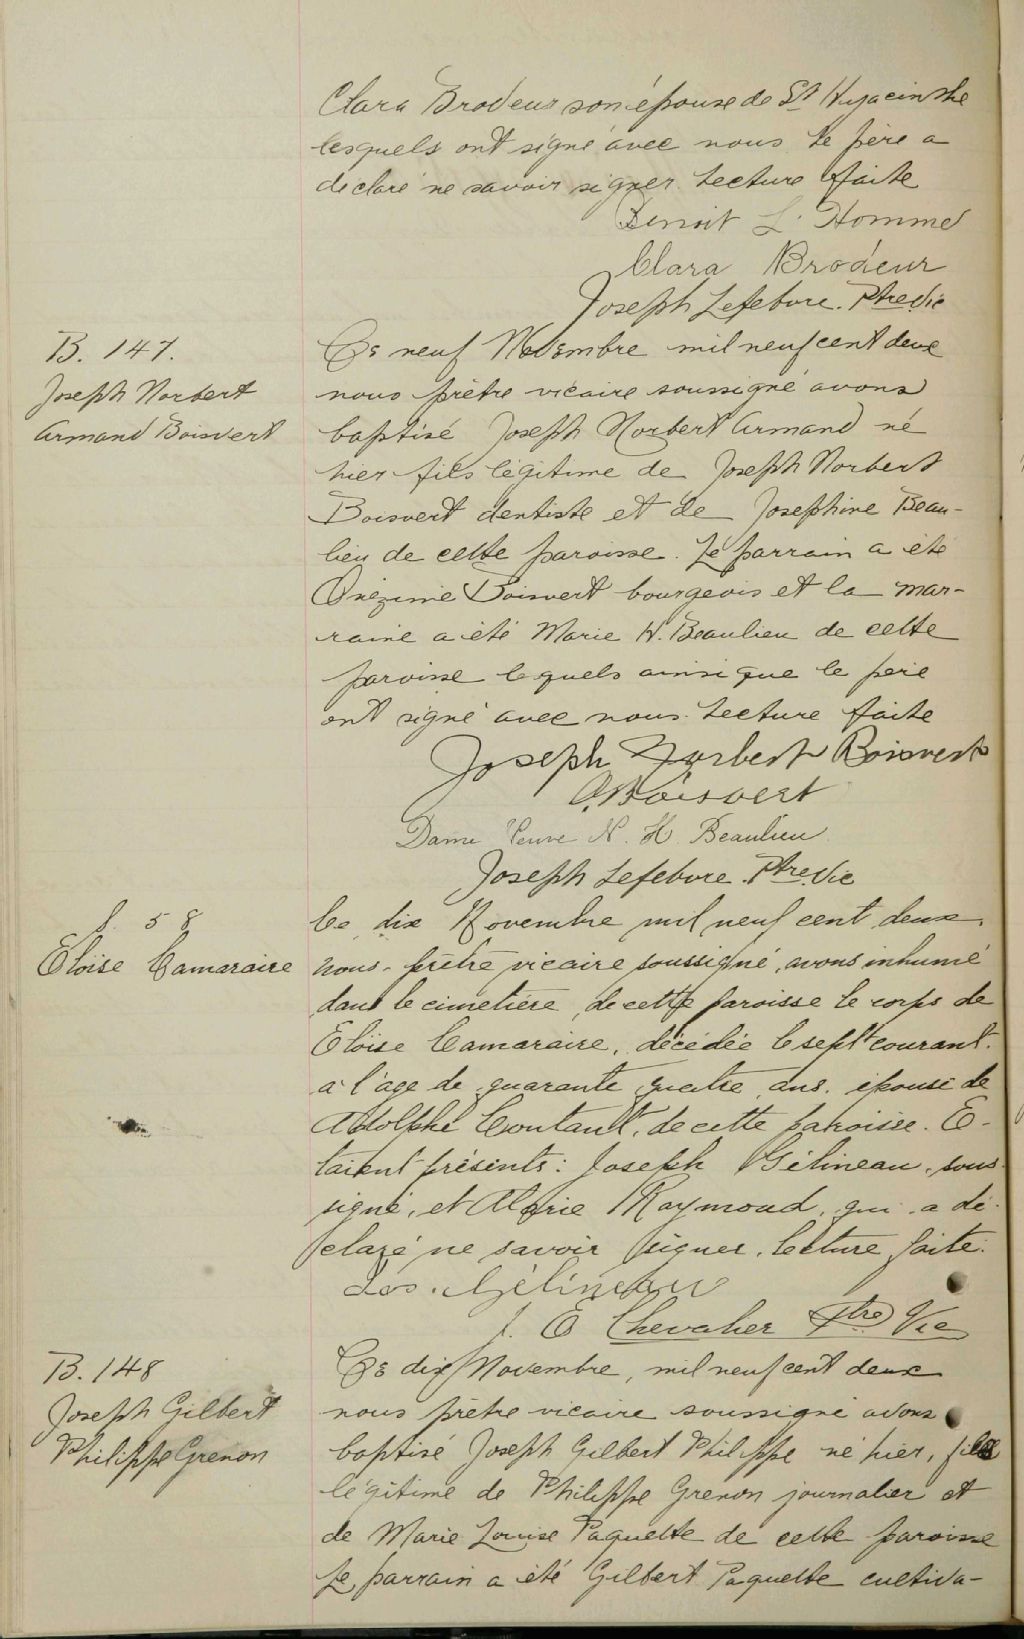 Clara Brodeur son épouse de St Hyacinthe
lesquels ont signé avec nous. Le père a
déclaré ne savoir signer. Lecture faite
Benoit L'Homme
Clara Brodeur
Joseph Lefebvre. Ptre Vic
B. 147.
Joseph Norbert
Armand Boisvert
Ce neuf Novembre mil neuf cent deux
nous prêtre vicaire soussigné avons
baptisé Joseph Norbert Armand né
hier fils légitime de Joseph Norbert
Boisvert dentiste et de Josephine Beau-
lieu de cette paroisse. Le parrain a été
Onézime Boisvert bourgeois et la mar-
raine a été Marie H. Beaulieu de cette
paroisse lequels ainsi que le père
ont signé avec nous. Lecture faite
Joseph Norbert Boisvert
O. Boisvert
Dame Veuve N. H. Beaulieu
Joseph Lefebvre. Ptre Vic
S. 58
Eloïse Camaraire
Ce dix Novembre mil neuf cent deux,
nous, prêtre vicaire soussigné, avons inhumé
dans le cimetière de cette paroisse le corps de
Eloïse Camaraire, décédée le sept courant.
à l'age de quarante quatre ans. épouse de
Adolphe Coutant, de cette paroisse. E-
taient présents: Joseph Gélineau, sous-
signé, et Marie Raymond, qui a dé-
claré ne savoir signer, lecture faite.
Jos. Gélineau
J. E Chevalier Ptre Vic
B. 148
Joseph Gilbert
Philippe Grenon
Ce dix Novembre, mil neuf cent deux
nous prêtre vicaire soussigné avons
baptisé Joseph Gilbert Philippe né hier, fils
légitime de Philippe Grenon journalier et
de Marie Louise Paquette de cette paroisse
Le parrain a été Gilbert Paquette cultiva-